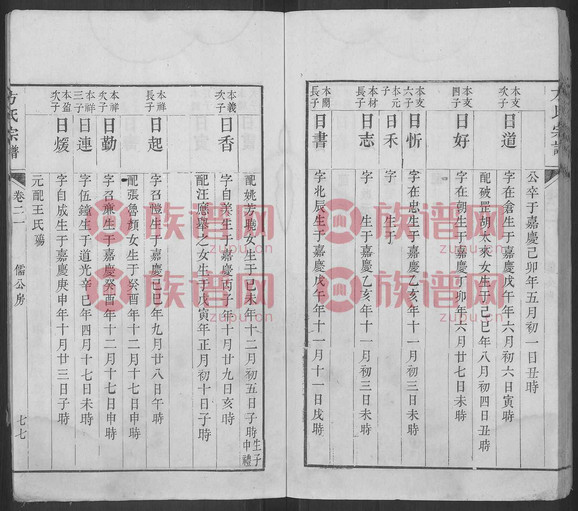 公卒于嘉慶己卯年五月初一日丑時
本支次子 日道 字在倉生于嘉慶戊午年六月初六日寅時
配破罡胡太來女生于己巳年八月初四日丑時
本支四子 日好 字在朝生于嘉慶丁卯年六月廿七日辰時
本支六子 日忻 字在忠生于嘉慶乙亥年十一月初三日未時
本元子 日禾 字 生于
本材長子 日志 字 生于嘉慶乙亥年十一月初三日未時
本蘭長子 日書 字北辰生于嘉慶戊午年十一月十一日戌時
配姚方 女生于己未年十二月初五日子時 生子申禮
本義次子 日香 字自美生于嘉慶丙子年十月廿九日亥時
配汪應 之女生于戊寅年正月初十日子時
本祥長子 日起 字召 生于嘉慶己巳年九月廿八日午時
配張魯顏女生于癸酉年十二月十七日申時
本祥次子 日勤 字召 生于嘉慶癸酉年十二月十七日申時
本祥三子 日連 字伍鐘生于道光辛巳年四月十七日未時
本盈次子 日煖 字自成生于嘉慶庚申年十月廿三日子時
元配王氏殤
方氏宗譜 卷二一 儒公房 七七
族谱网
zupu.cn